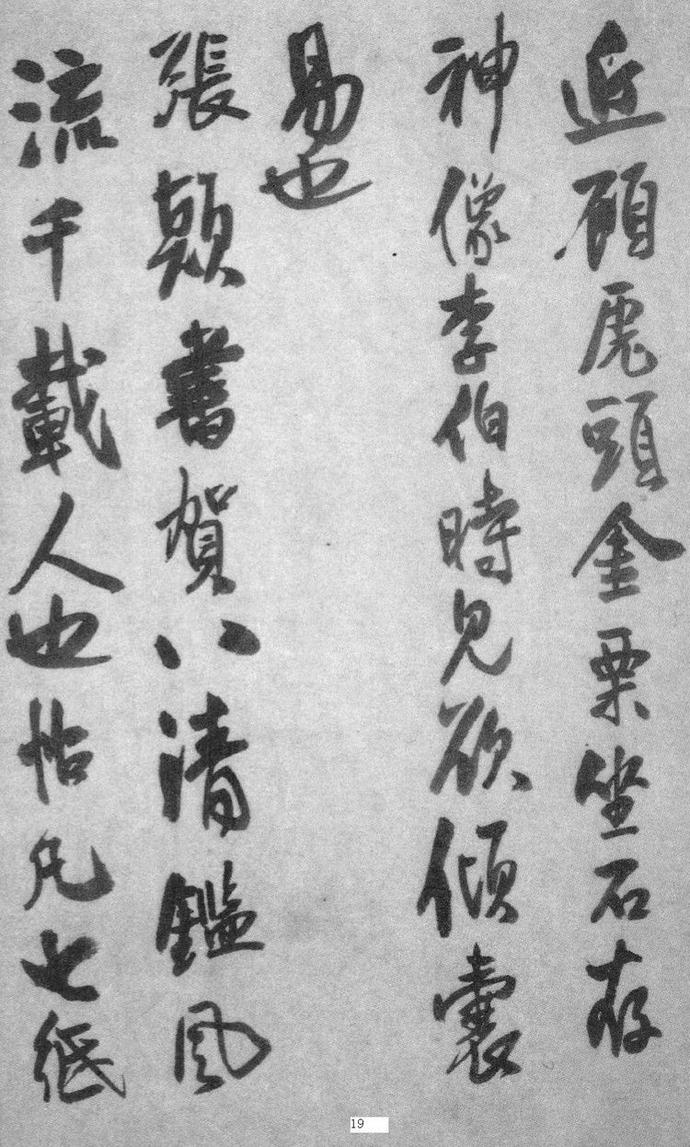 近顧虎頭金粟坐石存
神像李伯時見欲傾囊
易也
張顛書賀八清鑑風
流千載人也帖凡七紙
19